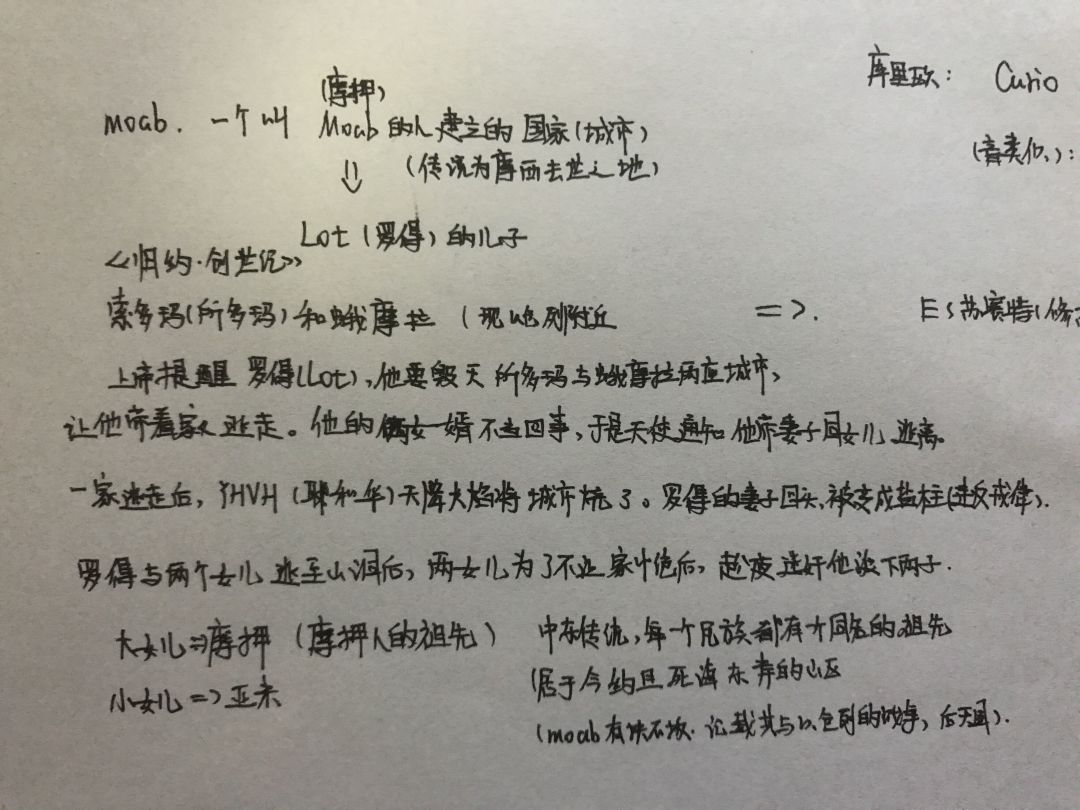 (摩押)
moab. 一个叫 Moab的人建立的国家(城市)
(传说为摩西去世之地)
⇓
Lot(罗得)的儿子
《旧约·创世纪》
索多玛(所多玛)和蛾摩拉(现以色列附近
上帝提醒 罗得(Lot),他要毁灭所多玛与蛾摩拉两座城市,
让他带着家人逃走。他的俩女婿不当回事,于是天使通知他带妻子同女儿逃离。
一家逃走后,YHVH(耶和华)天降火焰将城市烧了。罗得的妻子回头,被变成盐柱(违反戒律).
罗得与两个女儿逃至山洞后,两女儿为了不让家中绝后,趁夜迷奸他诞下两子.
大女儿⇒摩押(摩押人的祖先)
小女儿=>亚米
中东传统,每一个民族都有个同名的祖先
(居于今约旦死海东岸的山区
(moab有块石 记载其与以色列的战争,
库里欧: Curio
(音类似、):
=>. 苏赛特(